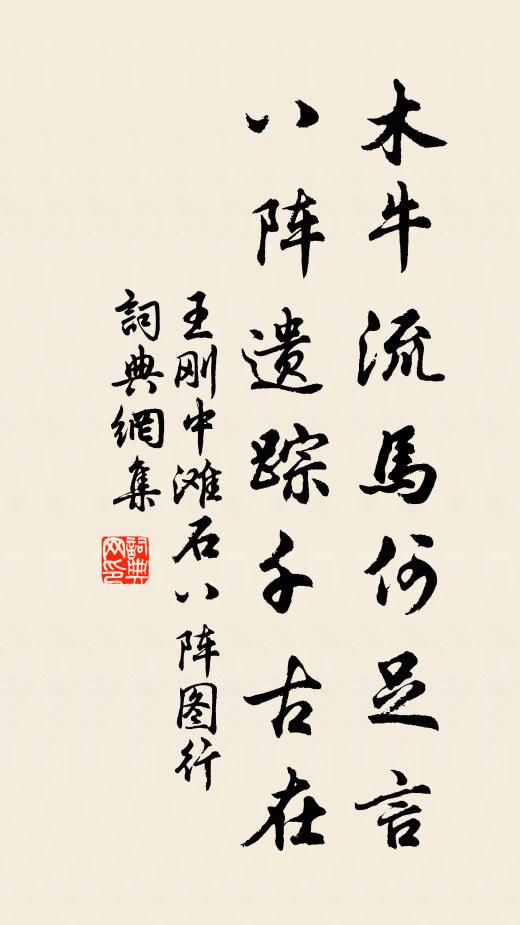 木牛流馬何足言
八阵遗踪千古在
王刚中滩石八阵图行
詞典網集
詞典网印